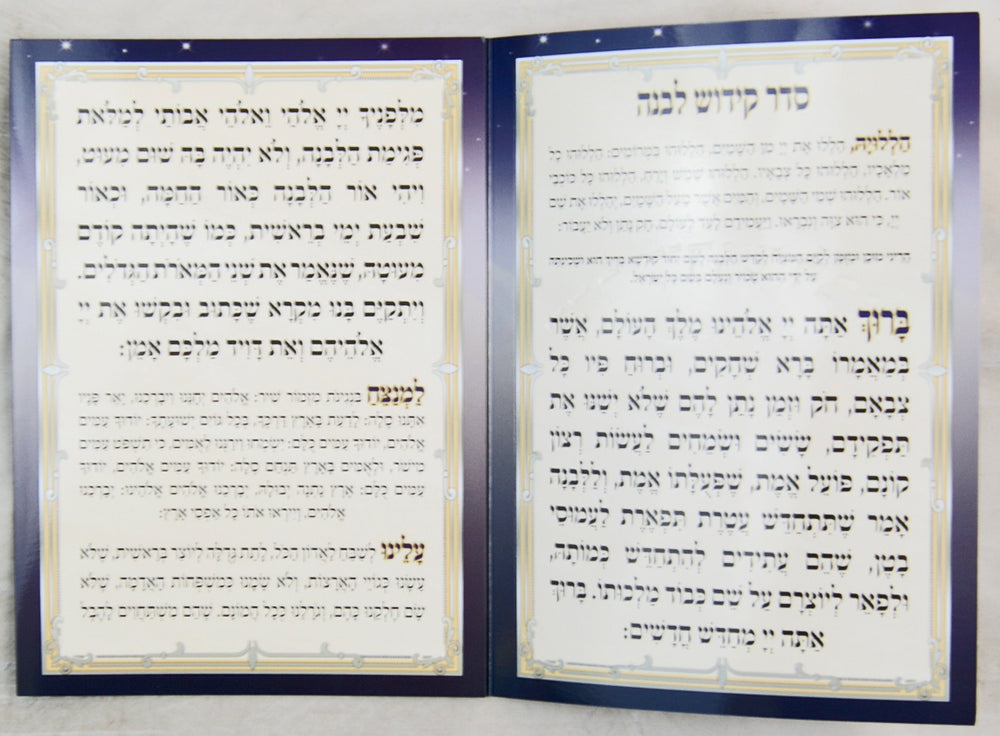 סדר קידוש לבנה
הַלְלוּיָהּ, הַלְלוּ אֶת יְיָ מִן הַשָּׁמַיִם, הַלְלוּהוּ בַּמְּרוֹמִים: הַלְלוּהוּ כָל
מַלְאָכָיו, הַלְלוּהוּ כָּל צְבָאָיו: הַלְלוּהוּ שֶׁמֶשׁ וְיָרֵחַ, הַלְלוּהוּ כָּל כּוֹכְבֵי
אוֹר. הַלְלוּהוּ שְׁמֵי הַשָּׁמַיִם, וְהַמַּיִם אֲשֶׁר מֵעַל הַשָּׁמַיִם, יְהַלְלוּ אֶת שֵׁם
יְיָ, כִּי הוּא צִוָּה וְנִבְרָאוּ. וַיַּעֲמִידֵם לָעַד לְעוֹלָם, חָק נָתַן וְלֹא יַעֲבוֹר:
הריני מוכן ומזומן לקיים המצוה לקדש הלבנה לשם יחוד קודשא בריך הוא ושכינתיה
על ידי ההוא טמיר ונעלם בשם כל ישראל.
בָּרוּךְ אַתָּה יְיָ אֱלֹהֵינוּ מֶלֶךְ הָעוֹלָם, אֲשֶׁר
בְּמַאֲמָרוֹ בָּרָא שְׁחָקִים, וּבְרוּחַ פִּיו כָּל
צְבָאָם, חֹק וּזְמַן נָתַן לָהֶם שֶׁלֹּא יְשַׁנּוּ אֶת
תַּפְקִידָם, שָׂשִׂים וּשְׂמֵחִים לַעֲשׂוֹת רְצוֹן
קוֹנָם, פּוֹעֵל אֱמֶת, שֶׁפְּעֻלָּתוֹ אֱמֶת, וְלַלְּבָנָה
אָמַר שֶׁתִּתְחַדֵּשׁ עֲטֶרֶת תִּפְאֶרֶת לַעֲמוּסֵי
בָטֶן, שֶׁהֵם עֲתִידִים לְהִתְחַדֵּשׁ כְּמוֹתָהּ,
וּלְפָאֵר לְיוֹצְרָם עַל שֵׁם כְּבוֹד מַלְכוּתוֹ. בָּרוּךְ
אַתָּה יְיָ מְחַדֵּשׁ חֳדָשִׁים:
מִלְּפָנֶיךָ יְיָ אֱלֹהַי וֵאלֹהֵי אֲבוֹתַי לְמַלֹּאת
פְּגִימַת הַלְּבָנָה, וְלֹא יִהְיֶה בָּהּ שׁוּם מִעוּט,
וִיהִי אוֹר הַלְּבָנָה כְּאוֹר הַחַמָּה, וּכְאוֹר
שִׁבְעַת יְמֵי בְרֵאשִׁית, כְּמוֹ שֶׁהָיְתָה קוֹדֶם
מִעוּטָהּ, שֶׁנֶּאֱמַר אֶת שְׁנֵי הַמְּאֹרֹת הַגְּדֹלִים.
וְיִתְקַיֵּם בָּנוּ מִקְרָא שֶׁכָּתוּב וּבִקְשׁוּ אֶת יְיָ
אֱלֹהֵיהֶם וְאֵת דָּוִיד מַלְכָּם אָמֵן:
לַמְנַצֵּחַ בִּנְגִינֹת מִזְמוֹר שִׁיר: אֱלֹהִים יְחָנֵּנוּ וִיבָרְכֵנוּ, יָאֵר פָּנָיו
אִתָּנוּ סֶלָה: לָדַעַת בָּאָרֶץ דַּרְכֶּךָ, בְּכָל גּוֹיִם יְשׁוּעָתֶךָ: יוֹדוּךָ עַמִּים
אֱלֹהִים, יוֹדוּךָ עַמִּים כֻּלָּם: יִשְׂמְחוּ וִירַנְּנוּ לְאֻמִּים, כִּי תִשְׁפֹּט עַמִּים
מִישֹׁר, וּלְאֻמִּים בָּאָרֶץ תַּנְחֵם סֶלָה: יוֹדוּךָ עַמִּים אֱלֹהִים, יוֹדוּךָ
עַמִּים כֻּלָּם: אֶרֶץ נָתְנָה יְבוּלָהּ, יְבָרְכֵנוּ אֱלֹהִים אֱלֹהֵינוּ: יְבָרְכֵנוּ
אֱלֹהִים, וְיִירְאוּ אוֹתוֹ כָּל אַפְסֵי אָרֶץ:
עָלֵינוּ לְשַׁבֵּחַ לַאֲדוֹן הַכֹּל, לָתֵת גְּדֻלָּה לְיוֹצֵר בְּרֵאשִׁית, שֶׁלֹּא
עָשָׂנוּ כְּגוֹיֵי הָאֲרָצוֹת, וְלֹא שָׂמָנוּ כְּמִשְׁפְּחוֹת הָאֲדָמָה, שֶׁלֹּא
שָׂם חֶלְקֵנוּ כָּהֶם, וְגֹרָלֵנוּ כְּכָל הֲמוֹנָם. שֶׁהֵם מִשְׁתַּחֲוִים לְהֶבֶל